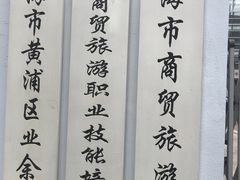 海市黄浦区业余
商贸旅游职业技能培
海市商贸旅游